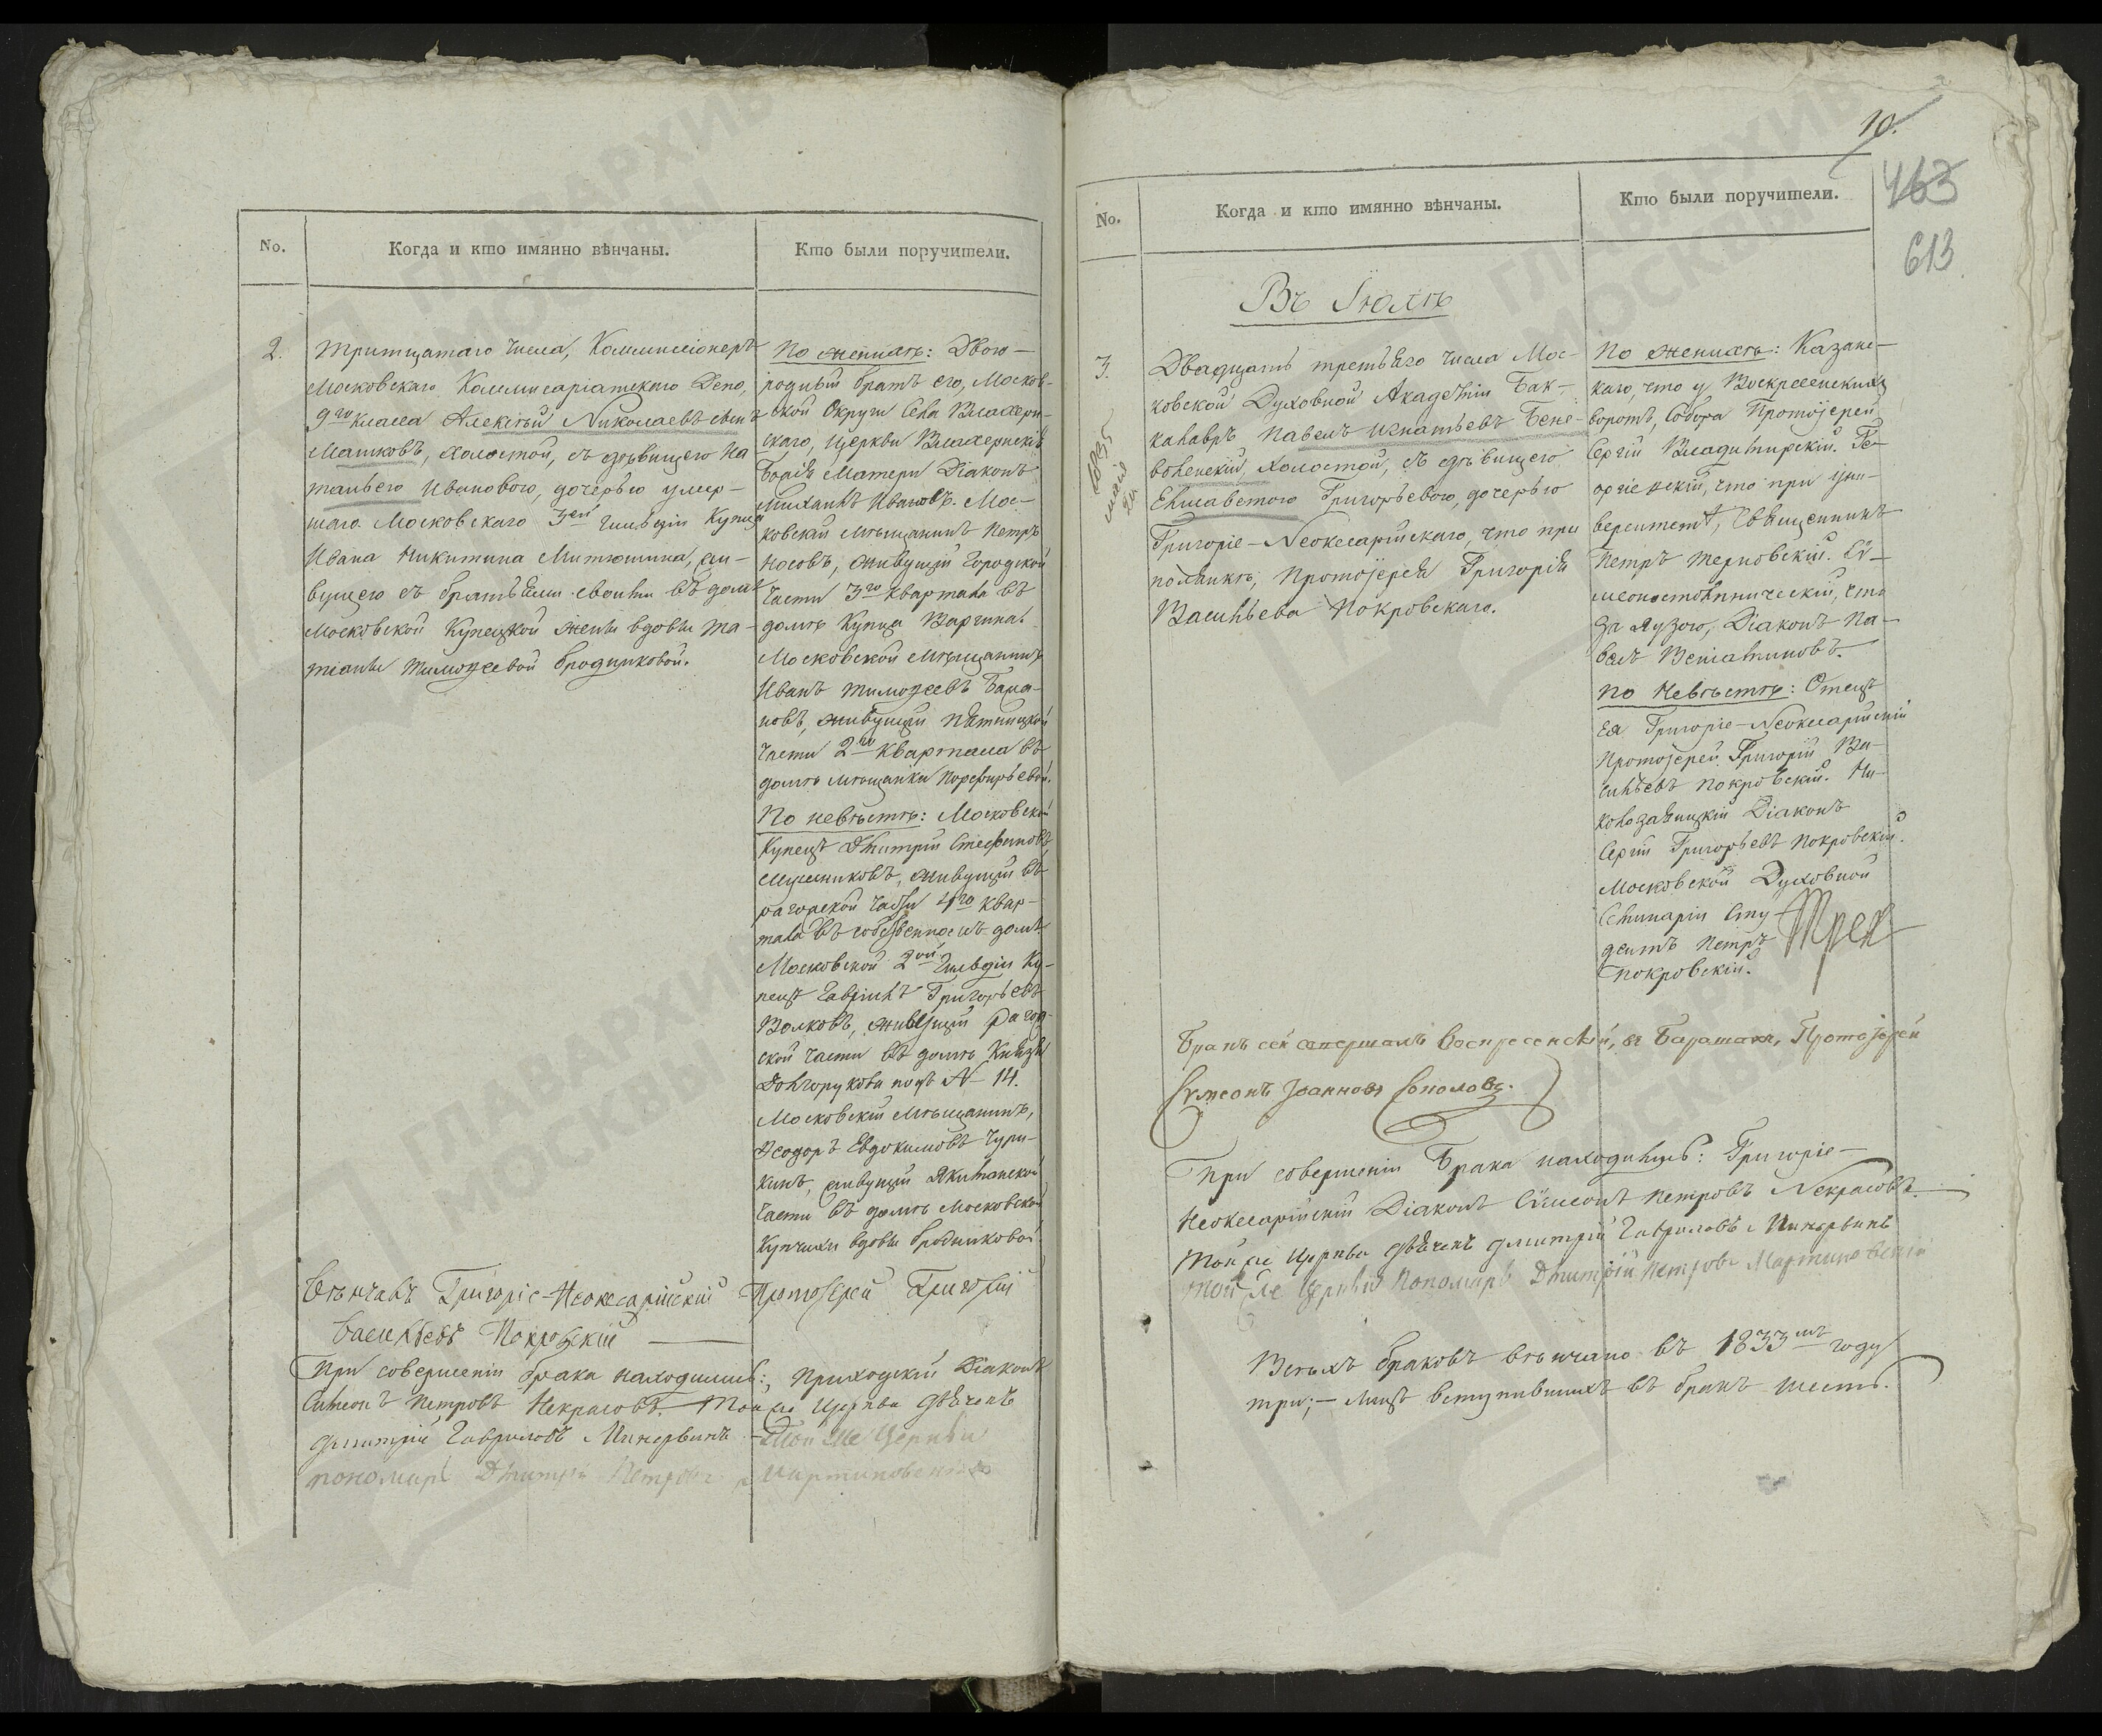 No.
Когда и кто имянно вѣнчаны.
Кто были поручители.
2.
Тритцатаго числа, Коммиссіонеръ
Московскаго Коммисаріатскаго Депо,
9го класса Алексѣй Николаевъ сынъ
Машковъ, холостой, съ дѣвицею На
тальею Ивановою, дочерью умер-
шаго Московскаго 3ей гильдіи Купца
Ивана Никитина Митюшина, жи-
вущею съ братьями своими въ домѣ
Московской Купецкой жены вдовы Та-
тіаны Тимоѳеевой Бродниковой.
По женихѣ: Двою-
родный братъ его, Москов-
ской Округи Села Влахерн-
скаго, Церкви Влахернскія
Божія Матери Діаконъ
Михаилъ Ивановъ. Мос-
ковскій мѣщанинъ Петръ
Носовъ, живущій Городской
части 3го квартала въ
домѣ Купца Варгина.
Московской мѣщанинъ
Иванъ Тимоѳеевъ
живущій Пятницкой
части 2го квартала въ
домѣ мѣщанки Порфирьевой.
По невѣстѣ: Московской
Купецъ Дмитрій Стефановъ
живущій въ
Рагожской части 4го квар-
тала въ собственномъ домѣ.
Московской 2ой гильдіи Ку-
пецъ Гавріилъ Григорьевъ
Волковъ, живущій Рагож-
ской части въ домѣ Князя
Долгорукова подъ N 14.
Московскій мѣщанинъ,
Ѳеодоръ Евдокимовъ Чури-
кинъ, живущій Якиманской
части въ домѣ Московской
Купчихи вдовы Бродниковой.
Вѣнчалъ Григоріе-Неокесарійскій Протоіерей Григорій
Васильевъ Покровскій
При совершеніи брака находились: Приходскій Діаконъ
Симеонъ Петровъ Некрасовъ. Той же Церкви дьячекъ
Дмитрій Гавриловъ Минервинъ Той же Церкви
пономарь Дмитрій Петровъ Мартиновскій
10.
463
613
No.
Когда и кто имянно вѣнчаны.
Кто были поручители.
Въ Іюлѣ
3.
1835
маія
Двадцать третьяго числа Мос-
ковской Духовной Академіи Бак-
калавръ Павелъ Игнатьевъ Бене-
воленскій, холостой, съ дѣвицею
Елисаветою Григорьевою, дочерью
Григоріе-Неокесарійскаго, что при
полянкѣ, Протоіерея Григорія
Васильева Покровскаго.
По женихѣ: Казанс-
каго, что у Воскресенскихъ
воротъ, Собора Протоіерей
Сергій Владимирскій. Ге-
оргіевскій, что при уни-
верситетѣ, Священникъ
Петръ Терновскій. Сѵ-
меоностолпническій, что
за Яузою, Діаконъ Па-
велъ Веніаминовъ.
По Невѣстѣ: Отецъ
ея Григоріе-Неокесарійскій
Протоіерей Григорій Ва-
сильевъ Покровскій. Ни-
колозаяицкій Діаконъ
Сергій Григорьевъ Покровскій.
Московской Духовной
Семинаріи Сту-
дентъ Петръ
Покровскій.
Трех
Бракъ сей совершалъ Воскресенскій, въ Барашахъ, Протоіерей
Сѵмеонъ Іоанновъ Соколовъ.
При совершеніи Брака находились: Григоріе-
Неокесарійскій Діаконъ Сѵмеонъ Петровъ Некрасовъ.
Той же Церкви дьячекъ Дмитрій Гавриловъ Минервинъ
Той же Церкви Пономарь Дмитрій Петровъ Мартиновскій
Всѣхъ браковъ вѣнчано въ 1833мъ году
три; — лицъ вступившихъ въ бракъ шесть.
ГЛАВАРХИВ
МОСКВЫ
ГЛАВАРХИВ
МОСКВЫ
ГЛАВАРХИВ
МОСКВЫ
ГЛАВАРХИВ
МОСКВЫ